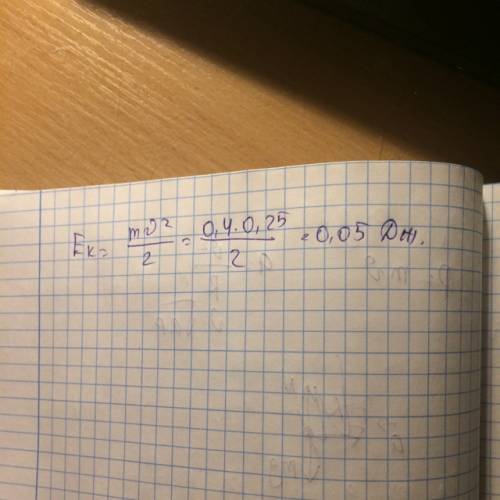 Eк = mυ²/2 = 0,4·0,25/2 = 0,05 Дж.